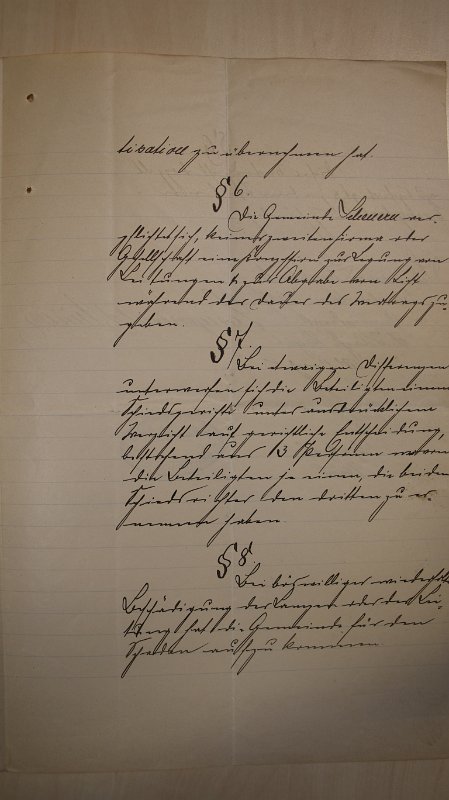 tisation zu übernehmen hat.
§ 6.
Die Gemeinde Scheuern ver-
pflichtet sich, keiner zweiten Firma oder
Gesellschaft eine Konzession zur Legung von
Leitungen & zur Abgabe von Licht
während der Dauer des Vertrags zu
geben.
§ 7.
Bei etwaigen Differenzen
unterwerfen sich die Beteiligten einem
Schiedsgericht unter ausdrücklichem
Verzicht auf gerichtliche Entscheidung,
bestehend aus 3 Personen wovon
die Beteiligten je einen, die beiden
Schiedsrichter den dritten zu er-
nennen haben.
§ 8.
Bei böswilliger wiederholter
Beschädigung der Lampen oder der Lei-
tung hat die Gemeinde für den
Schaden aufzukommen.